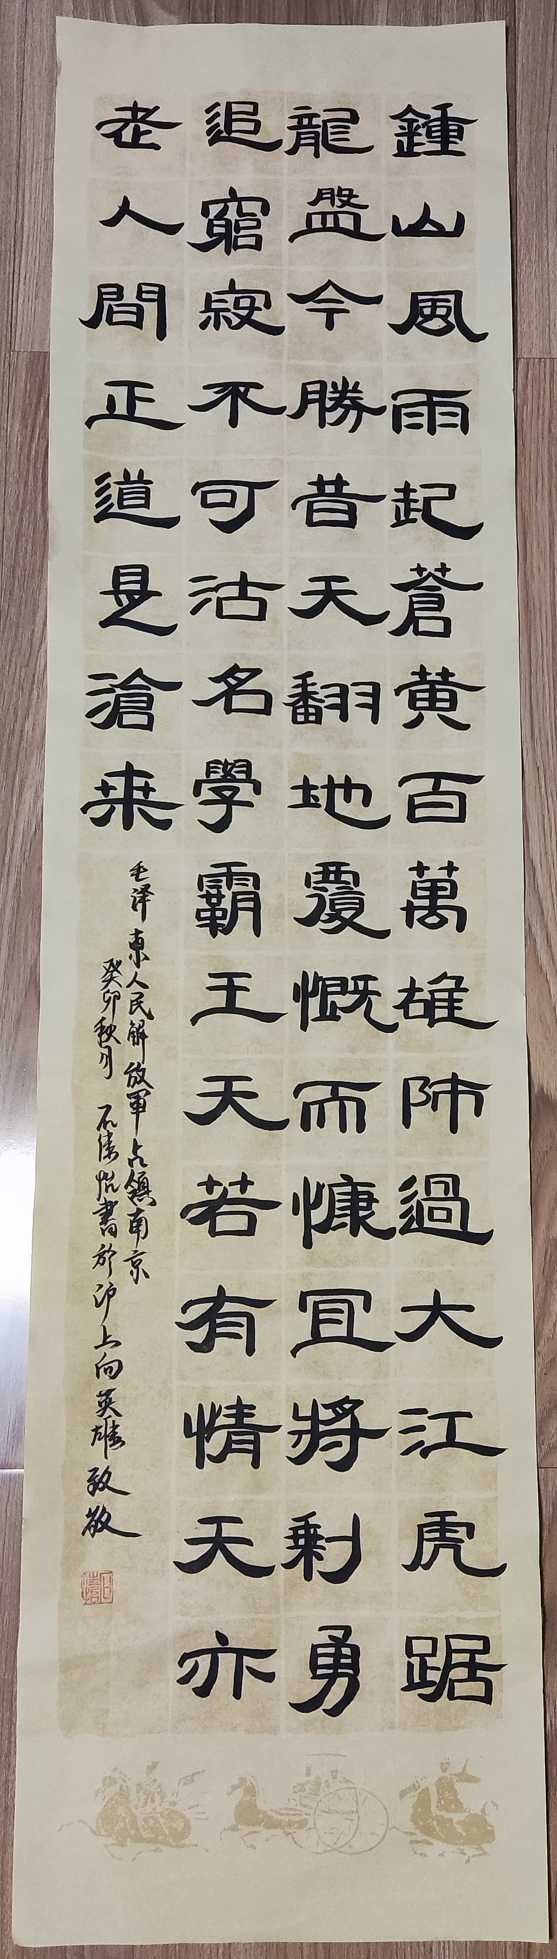 鍾山風雨起蒼黄百萬雄師過大江虎踞
龍盤今勝昔天翻地覆慨而慷宜將剩勇
追窮寇不可沽名學霸王天若有情天亦
老人間正道是滄桒
毛泽東人民解放軍占領南京
癸卯秋月 石倩怡書於沪上向英雄致敬